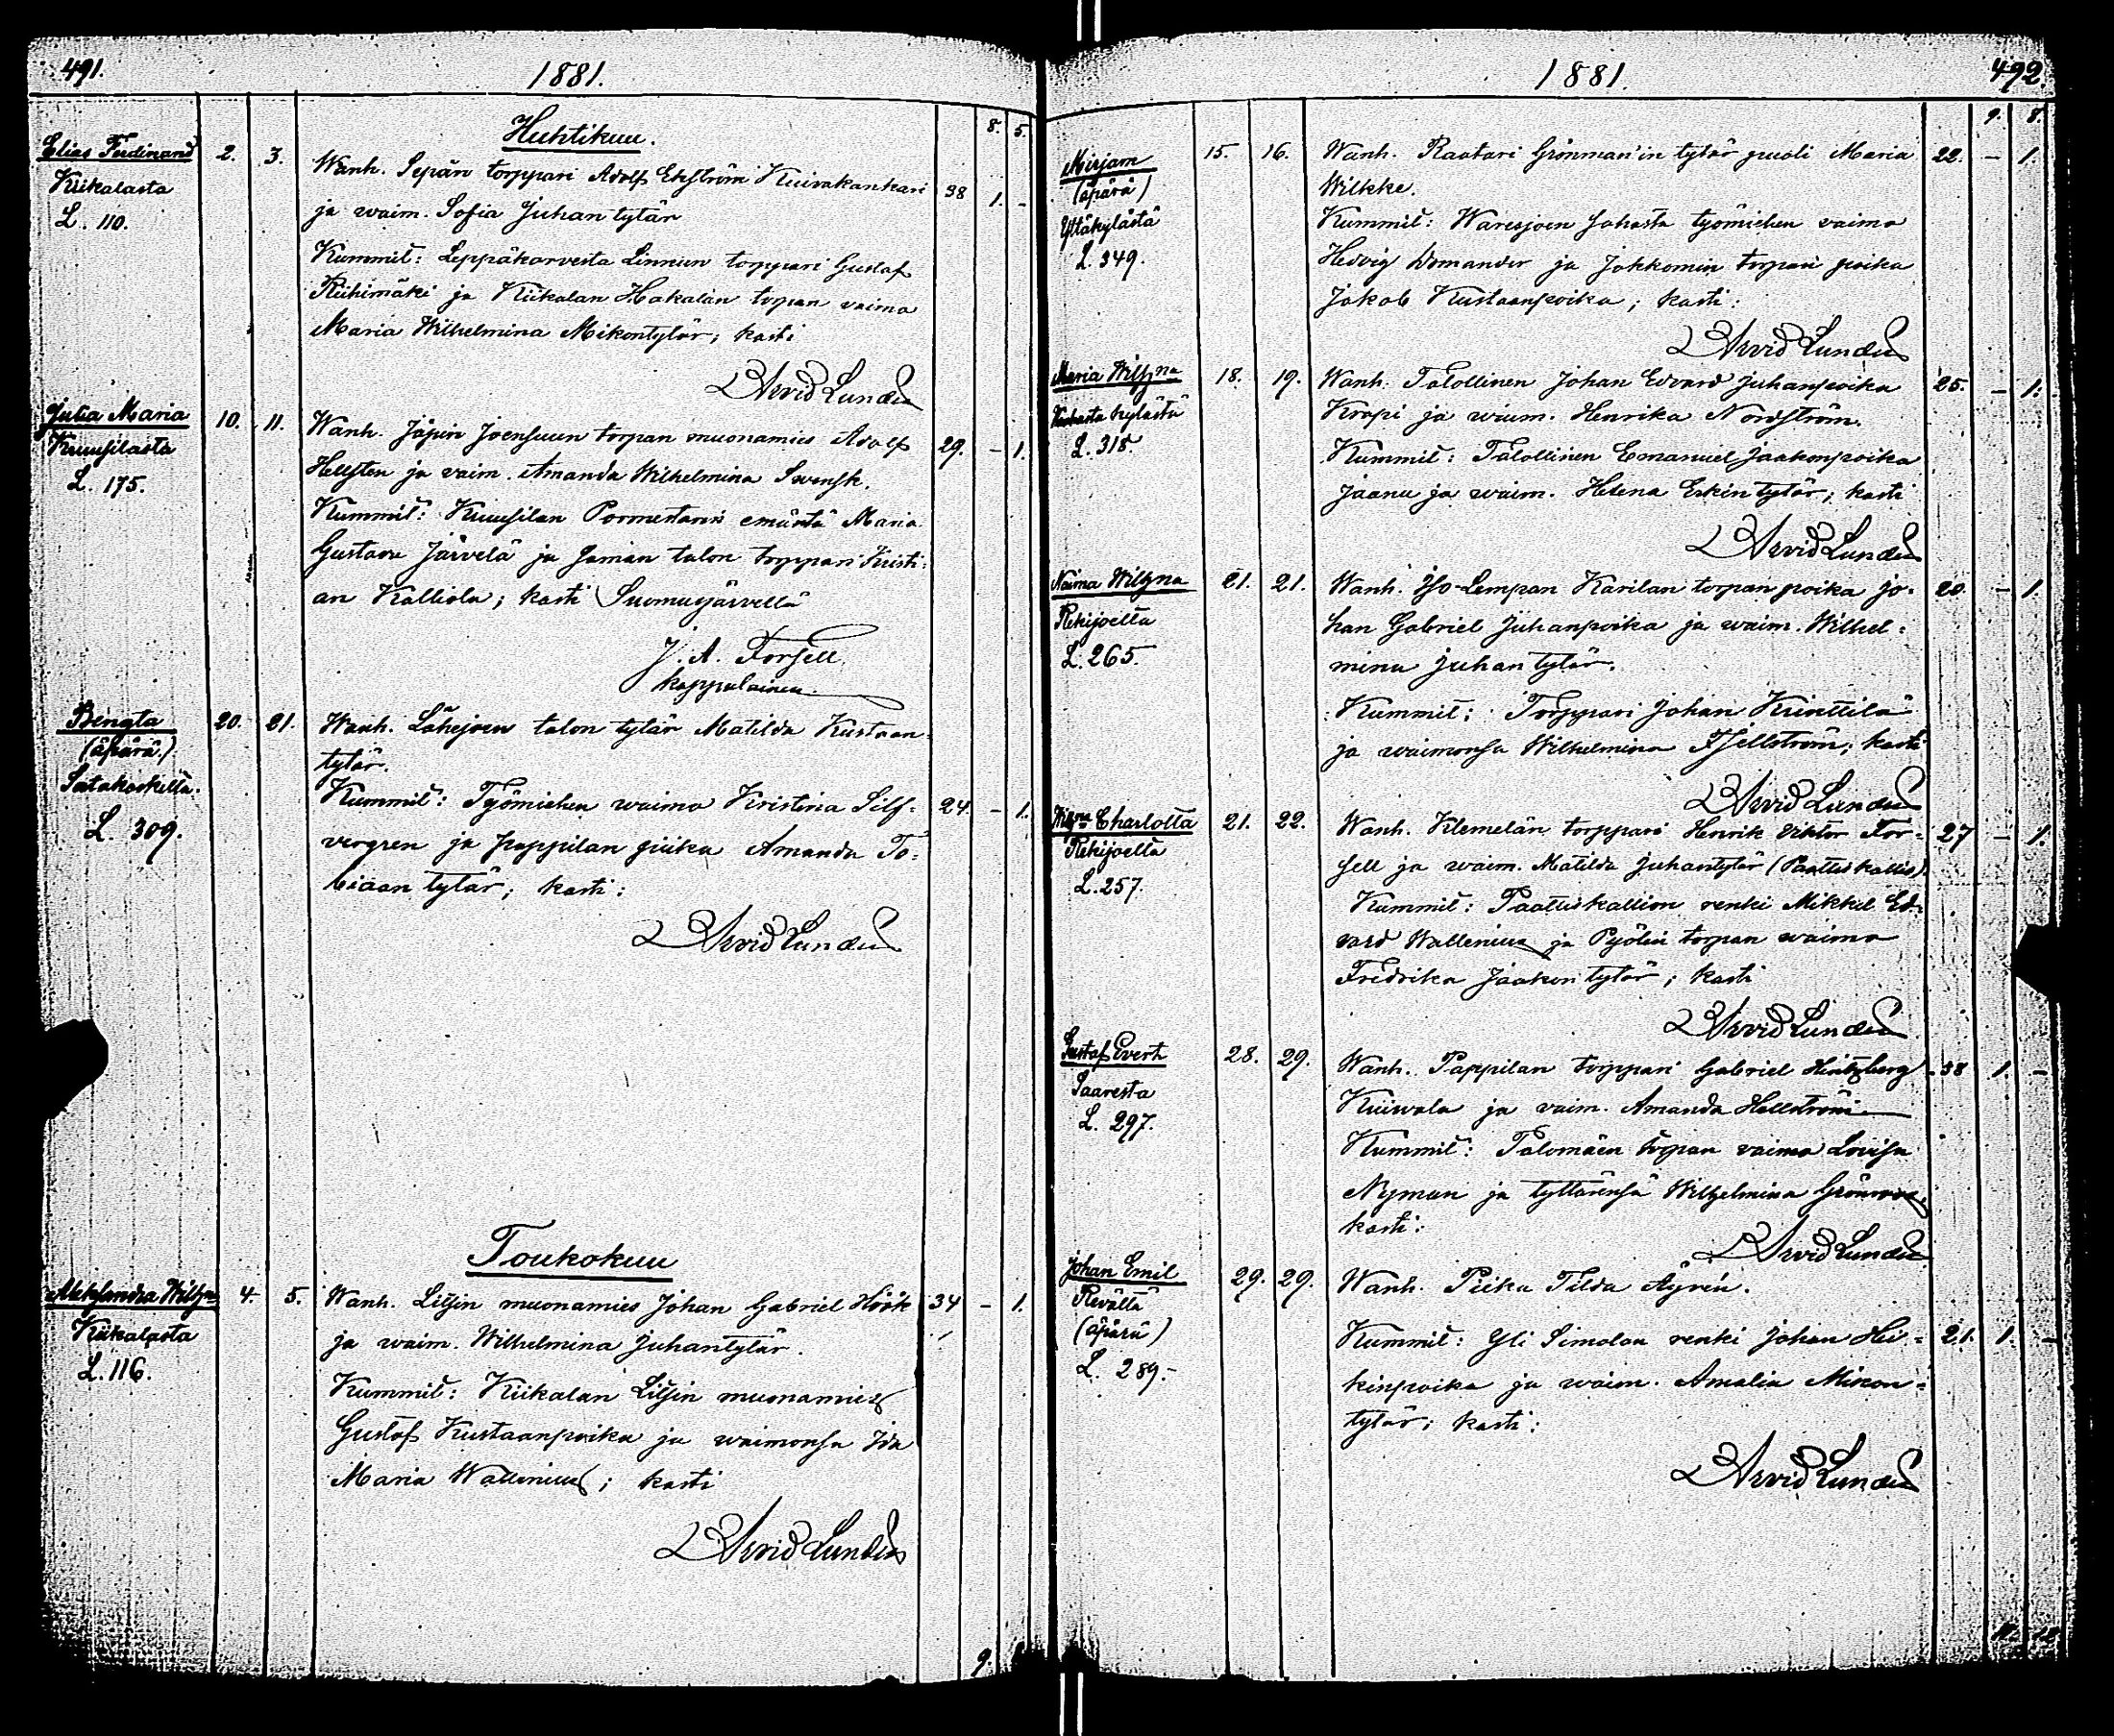 491.
1881.
Huhtikuu.
8. 5.
Elias Ferdinand 2. 3. Wanh. Sepän torppari Adolf Ekström Kuivakankari 38 1. -
Kiikalasta ja waim. Sofia Juhantytär
L. 110.
Kummit: Leppäkorvesta Linnun torppari Gustaf
Riihimäki ja Kiikalan Hakalan torpan vaimo
Maria Wilhelmina Mikontytär; kasti
Arvid Lundén
Julia Maria 10. 11. Wanh. Jäpin Joensuun torpan muonamies Adolf 29. - 1.
Kruusilasta Hellsten ja vaim. Amanda Wilhelmina Svensk.
L. 175.
Kummit: Kruusilan Pormestarin emäntä Maria
Gustava Järvelä ja saman talon torppari Kristi=
an Kalliola; kasti Suomusjärvellä
J. A. Forsell.
kappalainen
Bengta 20. 21. Wanh. Lähejoen talon tytär Matilda Kustaan
(äpärä) tytär.
Saitakoskelta.
Kummit: Työmiehen waimo Kristina Silf= 24. - 1.
L. 309.
vergren ja pappilan piika Amanda To=
biaan tytär; kasti:
Arvid Lundén
Toukokuu
Aleksandra Wilhna 4. 5. Wanh. Liljin muonamies Johan Gabriel Höök 34 - 1.
Kiikalasta ja waim. Wilhelmina Juhantytär.
L. 116.
Kummit: Kiikalan Liljin muonamies
Gustaf Kustaanpoika ja waimonsa Ida
Maria Wallenius; kasti
Arvid Lundén
9.
1881.
492.
9. 8.
Mirjam 15. 16. Wanh. Raatari Grönman'in tytär puoli Maria 22. - 1.
(äpärä) Wilkke.
Yltäkylästä
Kummit: Waresjoen Sahasta työmiehen vaimo
L. 349.
Hedvig Womander ja Jokkomin torpari poika
Jakob Kustaanpoika; kasti:
Arvid Lundén
Maria Wilhna 18. 19. Wanh. Talollinen Johan Edvard Juhanpoika 25. - 1.
kylästä Kropi ja waim. Henrika Nordström.
L. 318.
Kummit: Talollinen Emanuel Jaakonpoika
Jaanu ja waim. Helena Erkintytär; kasti
Arvid Lundén
Naima Wilhna 21. 21. Wanh. Iso-Lempan Karilan torpan poika Jo= 20. - 1.
Rekijoelta han Gabriel Juhanpoika ja waim. Wilhel=
L. 265. mina Juhantytär.
Kummit: Torppari Johan Krinttilä
ja waimonsa Wilhelmina Fjellström; kasti
Arvid Lundén
Wilhna Charlotta 21. 22. Wanh. Klemelän torppari Henrik Viktor For= 27 - 1.
Rekijoelta sell ja waim. Matilda Juhantytär (Paatuskallio).
L. 257.
Kummit: Paatuskallion renki Mikkel Ed=
vard Wallenius ja Pyölin torpan waimo
Fredrika Jaakontytär; kasti
Arvid Lundén
Gustaf Evert 28. 29. Wanh. Pappilan torppari Gabriel Hintzberg 38 1. -
Saaresta Kuiwala ja vaim. Amanda Hellström
L. 297.
Kummit: Palomäen torpan vaimo Lovisa
Nyman ja tyttärensä Wilhelmina Grönroos
kasti:
Arvid Lundén
Johan Emil 29. 29. Wanh. Piika Tilda Äyrén.
Revältä
(äpärä) Kummit: Yli Simolan renki Johan Hei= 21. 1. -
L. 289.- kinpoika ja waim. Amalia Mikon=
tytär; kasti:
Arvid Lundén